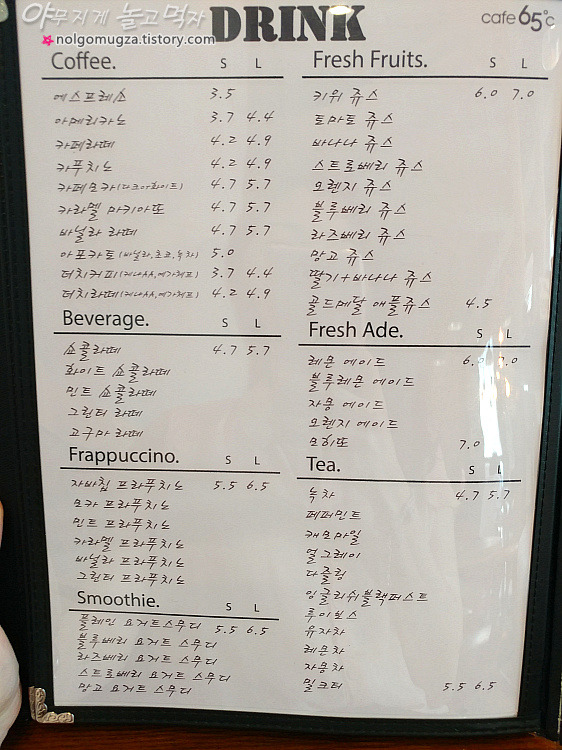 야무지게 놀고먹자
nolgomugza.tistory.com
DRINK
cafe 65℃
Coffee. S L
에스프레소 3.5
아메리카노 3.7 4.4
카페라떼 4.2 4.9
카푸치노 4.2 4.9
카페모카(다크아화이트) 4.7 5.7
카라멜 마키아또 4.7 5.7
바닐라 라떼 4.7 5.7
아포카토 (바닐라,초코,녹차) 5.0
더치커피(케냐AA,예가체프) 3.7 4.4
더치라떼(케냐AA,예가체프) 4.2 4.9
Beverage. S L
쇼콜라떼 4.7 5.7
화이트 쇼콜라떼
민트 쇼콜라떼
그린티 라떼
고구마 라떼
Frappuccino. S L
자바칩 프라푸치노 5.5 6.5
모카 프라푸치노
민트 프라푸치노
카라멜 프라푸치노
바닐라 프라푸치노
그린티 프라푸치노
Smoothie. S L
플레인 요거트스무디 5.5 6.5
블루베리 요거트 스무디
라즈베리 요거트 스무디
스트로베리 요거트 스무디
망고 요거트 스무디
Fresh Fruits. S L
키위 쥬스 6.0 7.0
토마토 쥬스
바나나 쥬스
스트로베리 쥬스
오렌지 쥬스
블루베리 쥬스
라즈베리 쥬스
망고 쥬스
딸기+바나나 쥬스
골드메달 애플쥬스 4.5
Fresh Ade. S L
레몬 에이드 6.0 7.0
블루레몬 에이드
자몽 에이드
오렌지 에이드
모히또 7.0
Tea. S L
녹차 4.7 5.7
페퍼민트
캐모마일
얼그레이
다즐링
잉글리쉬블랙퍼스트
루이보스
유자차
레몬차
자몽차
밀크티 5.5 6.5